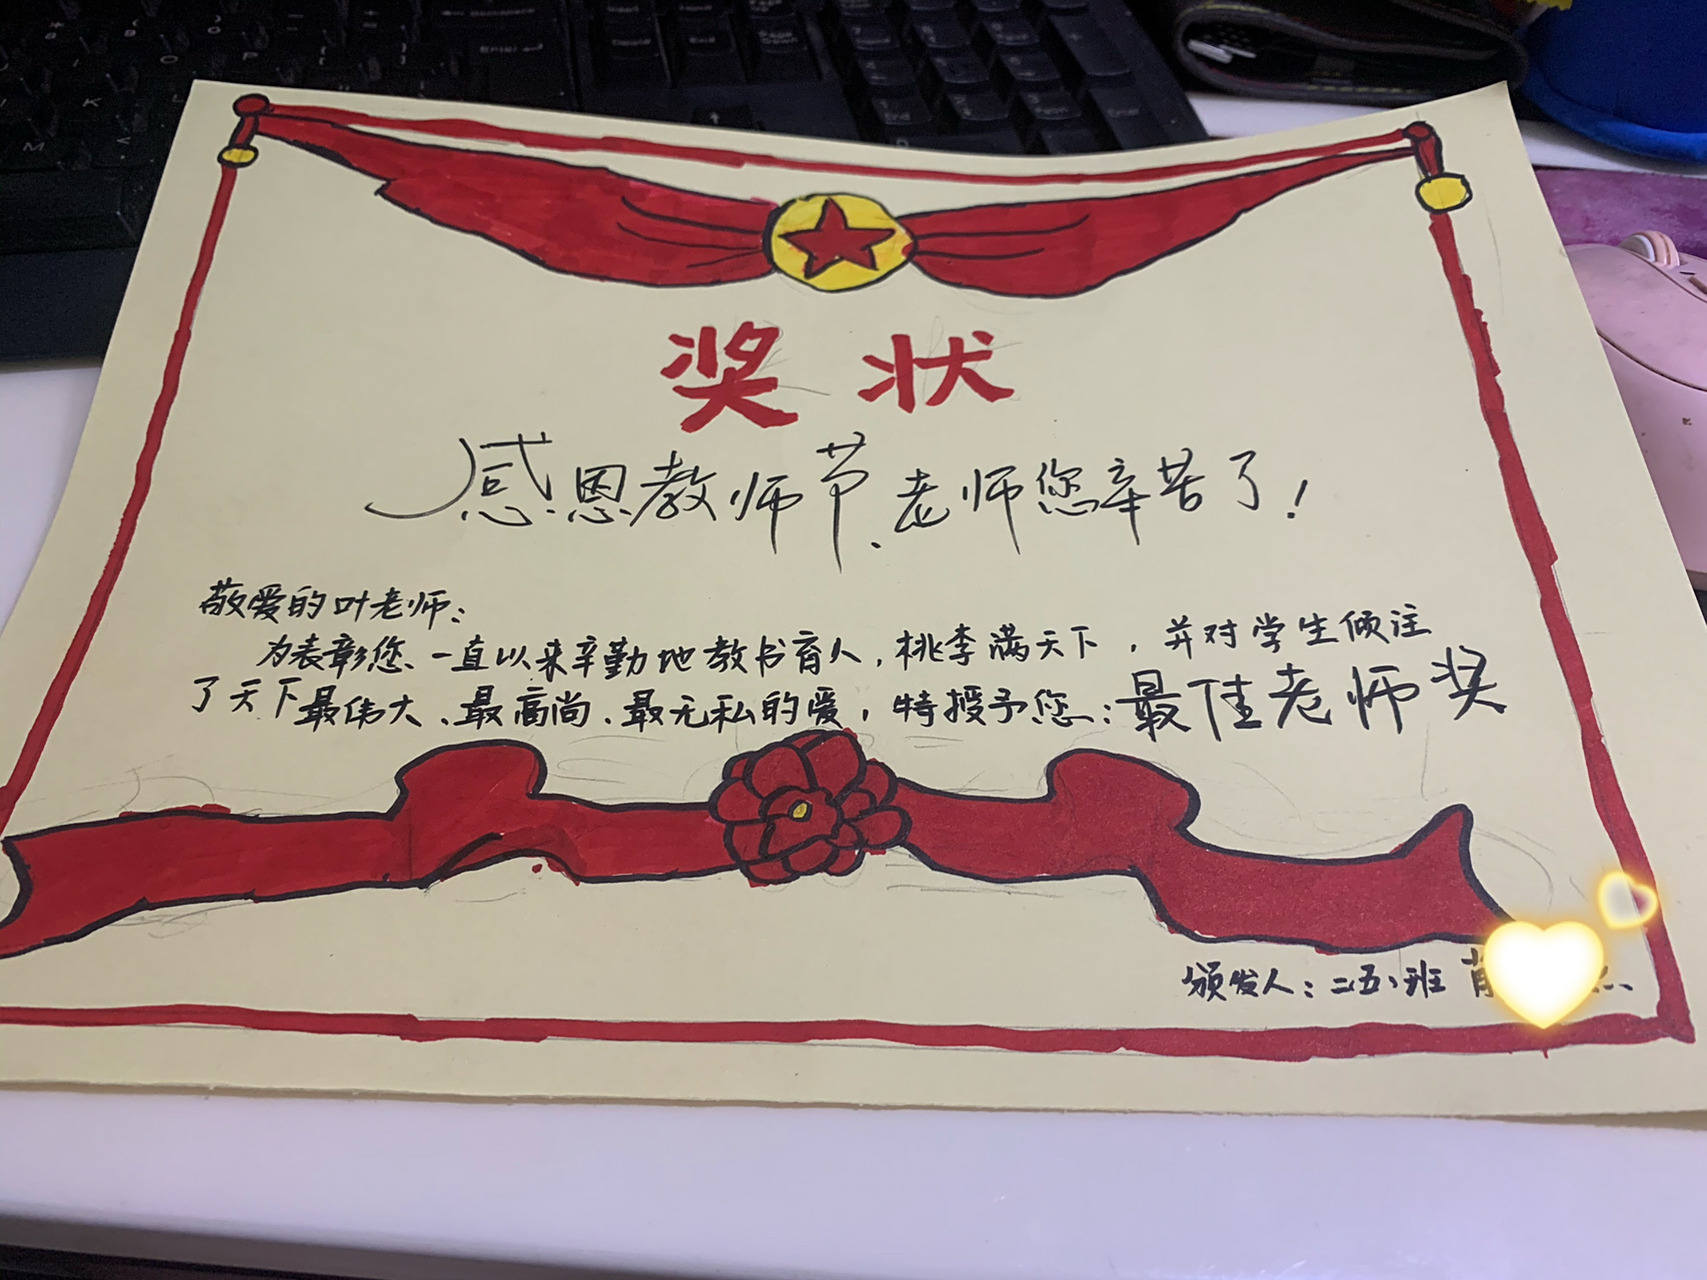 奖状
感恩教师节、老师您辛苦了！
敬爱的叶老师：
为表彰您、一直以来辛勤地教书育人，桃李满天下，并对学生倾注
了天下最伟大、最高尚、最无私的爱，特授予您：最佳老师奖
颁发人：二（五）班